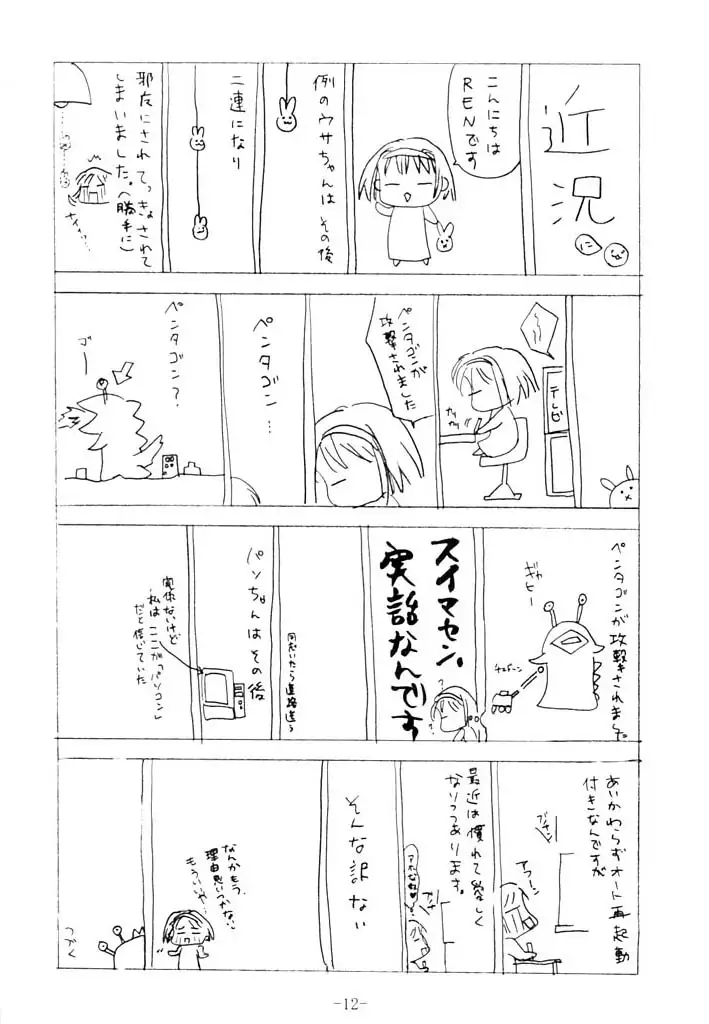 近況
こんにちは
RENです
例のウサちゃんは その後
二連になり
邪友にされててっきょされて
しまいました。(勝手に)
テレビ
カリカリ
ペンタゴンが
攻撃されました
ペンタゴン…
ペンタゴン?
ゴー
ペンタゴンが攻撃されました
ギャヒー
スイマセン、
実話なんです
パソちゃんは その後
実体ないけど
私はここが「パソコン」
だと信じていた
あいかわらずオート再起動
付きなんですが
ブチン
アフーン
最近は慣れて愛しく
なりつつあります。
そんな訳ない
なんかもう、
理由思いつかない
もういいや…
つづく
-12-